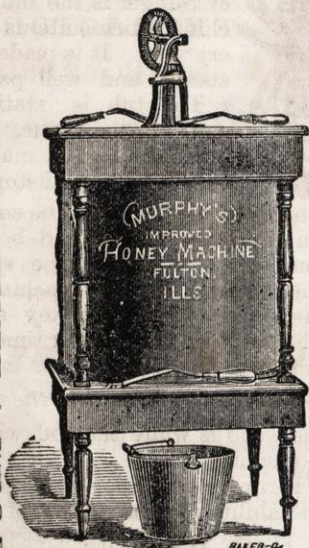 (MURPHY'S)
IMPROVED
HONEY MACHINE
FULTON
ILLS
BAKER-Co